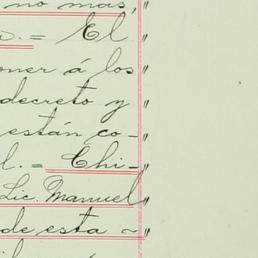 no mas, "
s. = El "
oner á los "
decreto y "
están co- "
l. = Chi- "
Lic. Manuel "
de esta ~ "